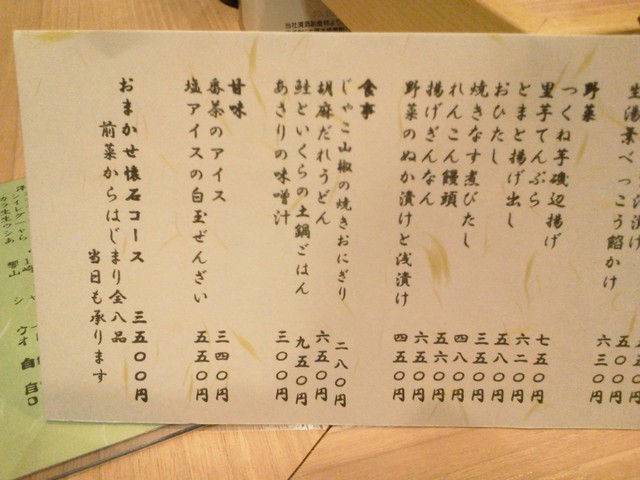 生湯葉べっこう餡かけ 六三〇円
野菜
つくね芋磯辺揚げ 七五〇円
里芋てんぷら 六二〇円
とまと揚げ出し 五八〇円
おひたし 三五〇円
焼きなす煮びたし 四八〇円
れんこん饅頭 五六〇円
揚げぎんなん 六五〇円
野菜のぬか漬けと浅漬け 四五〇円
食事
じゃこ山椒の焼きおにぎり 二八〇円
胡麻だれうどん 六五〇円
鮭といくらの土鍋ごはん 九五〇円
あさりの味噌汁 三〇〇円
甘味
番茶のアイス 三四〇円
塩アイスの白玉ぜんざい 五五〇円
おまかせ懐石コース 三五〇〇円
前菜からはじまり全八品
当日も承ります